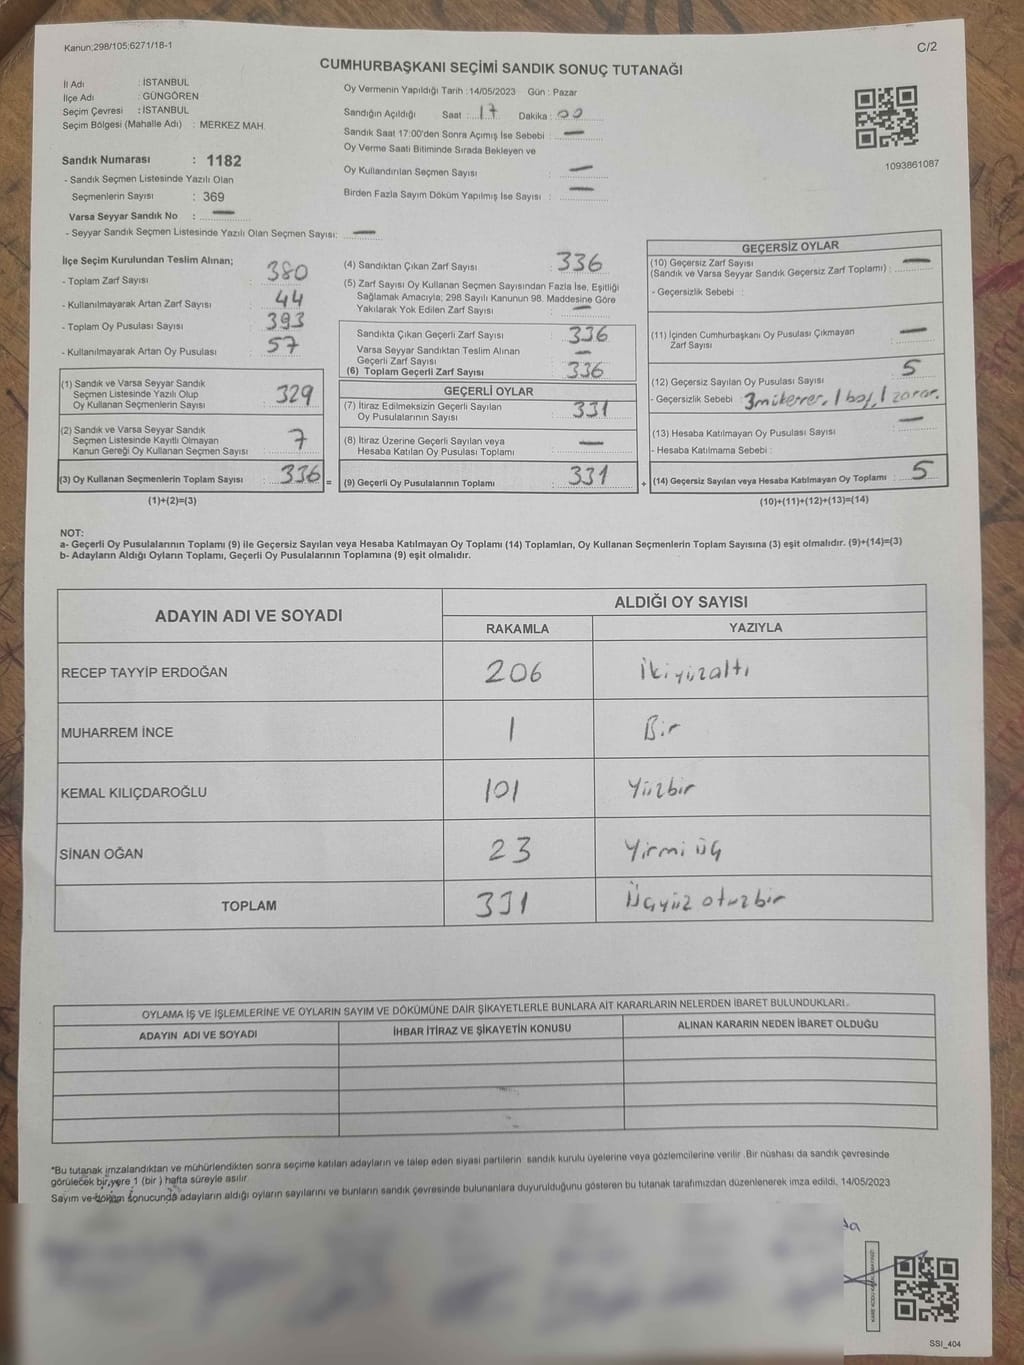 Kanun;298/105;6271/18-1
C/2
CUMHURBAŞKANI SEÇİMİ SANDIK SONUÇ TUTANAĞI
İl Adı : İSTANBUL
İlçe Adı : GÜNGÖREN
Seçim Çevresi : İSTANBUL
Seçim Bölgesi (Mahalle Adı) : MERKEZ MAH.
Sandık Numarası : 1182
- Sandık Seçmen Listesinde Yazılı Olan
Seçmenlerin Sayısı : 369
Varsa Seyyar Sandık No : —
- Seyyar Sandık Seçmen Listesinde Yazılı Olan Seçmen Sayısı: —
Oy Vermenin Yapıldığı Tarih : 14/05/2023 Gün : Pazar
Sandığın Açıldığı Saat : 17 Dakika : 00
Sandık Saat 17:00'den Sonra Açımış İse Sebebi : —
Oy Verme Saati Bitiminde Sırada Bekleyen ve
Oy Kullandırılan Seçmen Sayısı : —
Birden Fazla Sayım Döküm Yapılmış İse Sayısı : —
1093861087
İlçe Seçim Kurulundan Teslim Alınan;
- Toplam Zarf Sayısı : 380
- Kullanılmayarak Artan Zarf Sayısı : 44
- Toplam Oy Pusulası Sayısı : 393
- Kullanılmayarak Artan Oy Pusulası : 57
(1) Sandık ve Varsa Seyyar Sandık
Seçmen Listesinde Yazılı Olup
Oy Kullanan Seçmenlerin Sayısı : 329
(2) Sandık ve Varsa Seyyar Sandık
Seçmen Listesinde Kayıtlı Olmayan
Kanun Gereği Oy Kullanan Seçmen Sayısı : 7
(3) Oy Kullanan Seçmenlerin Toplam Sayısı : 336 =
(1)+(2)=(3)
(4) Sandıktan Çıkan Zarf Sayısı : 336
(5) Zarf Sayısı Oy Kullanan Seçmen Sayısından Fazla İse, Eşitliği
Sağlamak Amacıyla; 298 Sayılı Kanunun 98. Maddesine Göre
Yakılarak Yok Edilen Zarf Sayısı : —
Sandıkta Çıkan Geçerli Zarf Sayısı : 336
Varsa Seyyar Sandıktan Teslim Alınan
Geçerli Zarf Sayısı : —
(6) Toplam Geçerli Zarf Sayısı : 336
GEÇERLİ OYLAR
(7) İtiraz Edilmeksizin Geçerli Sayılan
Oy Pusulalarının Sayısı : 331
(8) İtiraz Üzerine Geçerli Sayılan veya
Hesaba Katılan Oy Pusulası Toplamı : —
(9) Geçerli Oy Pusulalarının Toplamı : 331 +
GEÇERSİZ OYLAR
(10) Geçersiz Zarf Sayısı
(Sandık ve Varsa Seyyar Sandık Geçersiz Zarf Toplamı) : —
- Geçersizlik Sebebi :
(11) İçinden Cumhurbaşkanı Oy Pusulası Çıkmayan
Zarf Sayısı : —
(12) Geçersiz Sayılan Oy Pusulası Sayısı : 5
- Geçersizlik Sebebi : 3 mükerrer, 1 boş, 1 zarar.
(13) Hesaba Katılmayan Oy Pusulası Sayısı : —
- Hesaba Katılmama Sebebi :
(14) Geçersiz Sayılan veya Hesaba Katılmayan Oy Toplamı : 5
(10)+(11)+(12)+(13)=(14)
NOT:
a- Geçerli Oy Pusulalarının Toplamı (9) ile Geçersiz Sayılan veya Hesaba Katılmayan Oy Toplamı (14) Toplamları, Oy Kullanan Seçmenlerin Toplam Sayısına (3) eşit olmalıdır. (9)+(14)=(3)
b- Adayların Aldığı Oyların Toplamı, Geçerli Oy Pusulalarının Toplamına (9) eşit olmalıdır.
ADAYIN ADI VE SOYADI ALDIĞI OY SAYISI
RAKAMLA YAZIYLA
RECEP TAYYİP ERDOĞAN 206 İkiyüzaltı
MUHARREM İNCE 1 Bir
KEMAL KILIÇDAROĞLU 101 Yüzbir
SİNAN OĞAN 23 Yirmi üç
TOPLAM 331 Üçyüz otuzbir
OYLAMA İŞ VE İŞLEMLERİNE VE OYLARIN SAYIM VE DÖKÜMÜNE DAİR ŞİKAYETLERLE BUNLARA AİT KARARLARIN NELERDEN İBARET BULUNDUKLARI.
ADAYIN ADI VE SOYADI İHBAR İTİRAZ VE ŞİKAYETİN KONUSU ALINAN KARARIN NEDEN İBARET OLDUĞU
*Bu tutanak imzalandıktan ve mühürlendikten sonra seçime katılan adayların ve talep eden siyasi partilerin sandık kurulu üyelerine veya gözlemcilerine verilir. Bir nüshası da sandık çevresinde
görülecek bir yere 1 (bir) hafta süreyle asılır.
Sayım ve döküm sonucunda adayların aldığı oyların sayılarını ve bunların sandık çevresinde bulunanlara duyurulduğunu gösteren bu tutanak tarafımızdan düzenlenerek imza edildi. 14/05/2023
SSI_404